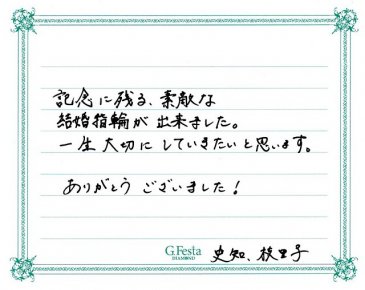 記念に残る、素敵な
結婚指輪が出来ました。
一生大切にしていきたいと思います。
ありがとうございました!
G.Festa
DIAMOND
史知、枝里子